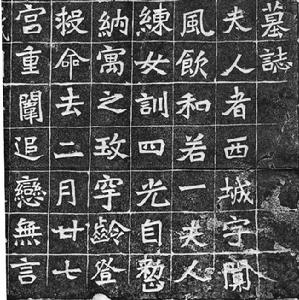 墓誌
夫人者西城宇闐
風飲和若一夫人
練女訓四光自
納寓之玫穹齡登
命去二月廿七
宮重闈追戀無言